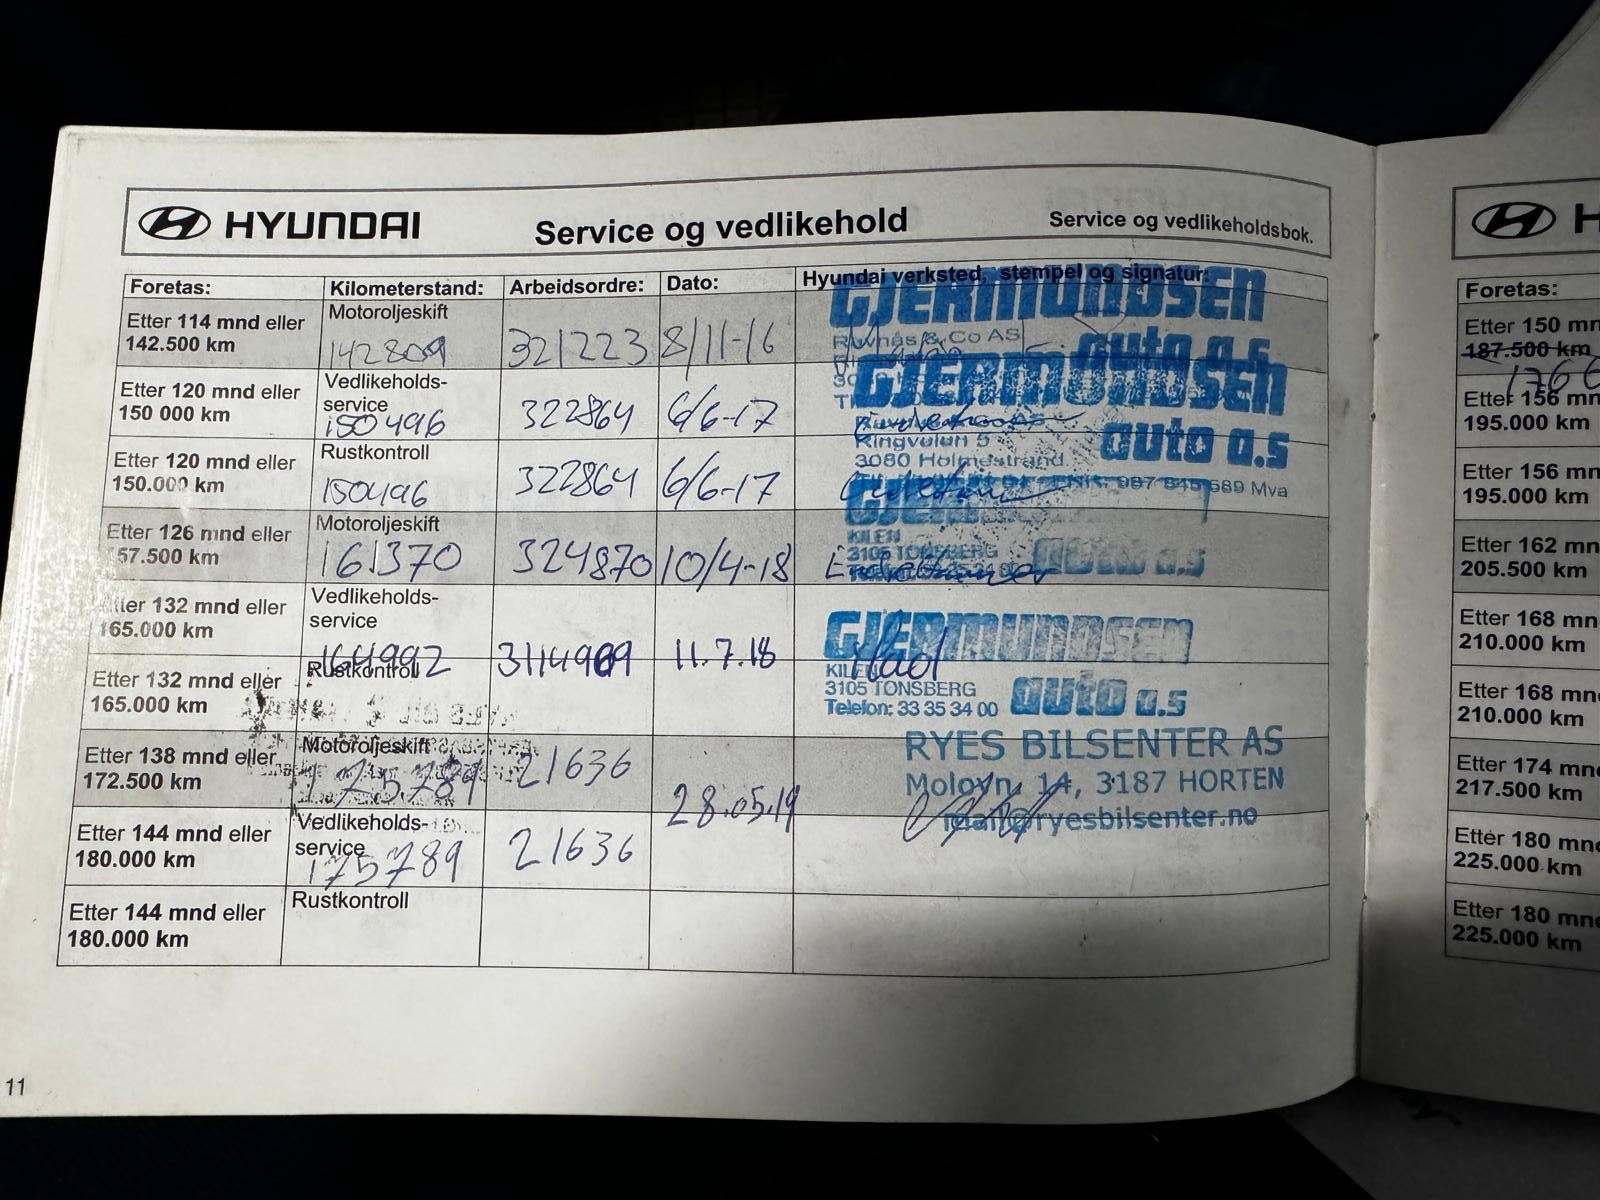 HYUNDAI Service og vedlikehold Service og vedlikeholdsbok.
Foretas: Kilometerstand: Arbeidsordre: Dato: Hyundai verksted, stempel og signatur:
Etter 114 mnd eller
142.500 km
Motoroljeskift
142809
321223
8/11-16
GJERMUNDSEN
& Co AS
auto a.s
Etter 120 mnd eller
150 000 km
Vedlikeholds-
service
150496
322864
6/6-17
GJERMUNDSEN
auto a.s
Ringveien 5
3080 Holmestrand
Etter 120 mnd eller
150.000 km
Rustkontroll
150496
322864
6/6-17
987 845 589 Mva
Etter 126 mnd eller
157.500 km
Motoroljeskift
161370
324870
10/4-18
KILEN
3105 TONSBERG
auto a.s
Etter 132 mnd eller
165.000 km
Vedlikeholds-
service
164992
3114969
11.7.18
GJERMUNDSEN
KILEN
3105 TONSBERG
Telefon: 33 35 34 00
auto a.s
Etter 132 mnd eller
165.000 km
Rustkontroll
Etter 138 mnd eller
172.500 km
Motoroljeskift
175.789
21636
28.05.19
RYES BILSENTER AS
Moloyn. 14, 3187 HORTEN
mail@ryesbilsenter.no
Etter 144 mnd eller
180.000 km
Vedlikeholds-
service
175789
21636
Etter 144 mnd eller
180.000 km
Rustkontroll
11
H
Foretas:
Etter 150 mn
187.500 km
1766
Etter 156 mn
195.000 km
Etter 156 mn
195.000 km
Etter 162 mn
205.500 km
Etter 168 mn
210.000 km
Etter 168 mn
210.000 km
Etter 174 mn
217.500 km
Etter 180 mn
225.000 km
Etter 180 mn
225.000 km